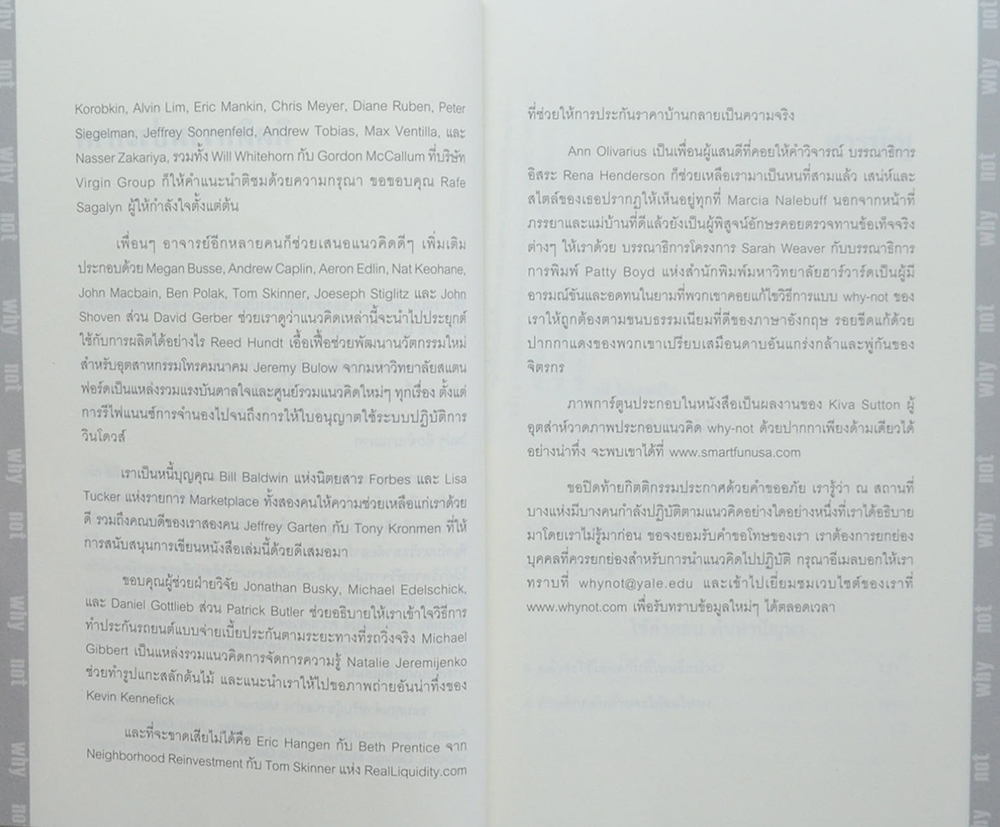 Korobkin, Alvin Lim, Eric Mankin, Chris Meyer, Diane Ruben, Peter
Siegelman, Jeffrey Sonnenfeld, Andrew Tobias, Max Ventilla, และ
Nasser Zakariya, รวมทั้ง Will Whitehorn กับ Gordon McCallum ที่บริษัท
Virgin Group ก็ให้คำแนะนำติชมด้วยความกรุณา ขอขอบคุณ Rafe
Sagalyn ผู้ให้กำลังใจตั้งแต่ต้น
เพื่อนๆ อาจารย์อีกหลายคนก็ช่วยเสนอแนวคิดดีๆ เพิ่มเติม
ประกอบด้วย Megan Busse, Andrew Caplin, Aeron Edlin, Nat Keohane,
John Macbain, Ben Polak, Tom Skinner, Joeseph Stiglitz และ John
Shoven ส่วน David Gerber ช่วยเราดูว่าแนวคิดเหล่านี้จะนำไปประยุกต์
ใช้กับการผลิตได้อย่างไร Reed Hundt เอื้อเฟื้อช่วยพัฒนานวัตกรรมใหม่
สำหรับอุตสาหกรรมโทรคมนาคม Jeremy Bulow จากมหาวิทยาลัยสแตน
ฟอร์ดเป็นแหล่งรวมแรงบันดาลใจและศูนย์รวมแนวคิดใหม่ๆ ทุกเรื่อง ตั้งแต่
การรีไฟแนนซ์การจำนองไปจนถึงการให้ใบอนุญาตใช้ระบบปฏิบัติการ
วินโดวส์
เราเป็นหนี้บุญคุณ Bill Baldwin แห่งนิตยสาร Forbes และ Lisa
Tucker แห่งรายการ Marketplace ทั้งสองคนให้ความช่วยเหลือแก่เราด้วย
ดี รวมถึงคณบดีของเราสองคน Jeffrey Garten กับ Tony Kronmen ที่ให้
การสนับสนุนการเขียนหนังสือเล่มนี้ด้วยดีเสมอมา
ขอบคุณผู้ช่วยฝ่ายวิจัย Jonathan Busky, Michael Edelschick,
และ Daniel Gottlieb ส่วน Patrick Butler ช่วยอธิบายให้เราเข้าใจวิธีการ
ทำประกันรถยนต์แบบจ่ายเบี้ยประกันตามระยะทางที่รถวิ่งจริง Michael
Gibbert เป็นแหล่งรวมแนวคิดการจัดการความรู้ Natalie Jeremijenko
ช่วยทำรูปแกะสลักต้นไม้ และแนะนำเราให้ไปขอภาพถ่ายอันน่าทึ่งของ
Kevin Kennefick
และที่จะขาดเสียไม่ได้คือ Eric Hangen กับ Beth Prentice จาก
Neighborhood Reinvestment กับ Tom Skinner แห่ง RealLiquidity.com
ที่ช่วยให้การประกันราคาบ้านกลายเป็นความจริง
Ann Olivarius เป็นเพื่อนผู้แสนดีที่คอยให้คำวิจารณ์ บรรณาธิการ
อิสระ Rena Henderson ก็ช่วยเหลือเรามาเป็นหนที่สามแล้ว เสน่ห์และ
สไตล์ของเธอปรากฏให้เห็นอยู่ทุกที่ Marcia Nalebuff นอกจากหน้าที่
ภรรยาและแม่บ้านที่ดีแล้วยังเป็นผู้พิสูจน์อักษรคอยตรวจทานข้อเท็จจริง
ต่างๆ ให้เราด้วย บรรณาธิการโครงการ Sarah Weaver กับบรรณาธิการ
การพิมพ์ Patty Boyd แห่งสำนักพิมพ์มหาวิทยาลัยฮาร์วาร์ดเป็นผู้มี
อารมณ์ขันและอดทนในยามที่พวกเขาคอยแก้ไขวิธีการแบบ why-not ของ
เราให้ถูกต้องตามขนบธรรมเนียมที่ดีของภาษาอังกฤษ รอยขีดแก้ด้วย
ปากกาแดงของพวกเขาเปรียบเสมือนดาบอันแกร่งกล้าและพู่กันของ
จิตรกร
ภาพการ์ตูนประกอบในหนังสือเป็นผลงานของ Kiva Sutton ผู้
อุตส่าห์วาดภาพประกอบแนวคิด why-not ด้วยปากกาเพียงด้ามเดียวได้
อย่างน่าทึ่ง จะพบเขาได้ที่ www.smartfunusa.com
ขอปิดท้ายกิตติกรรมประกาศด้วยคำขออภัย เรารู้ว่า ณ สถานที่
บางแห่งมีบางคนกำลังปฏิบัติตามแนวคิดอย่างใดอย่างหนึ่งที่เราได้อธิบาย
มาโดยเราไม่รู้มาก่อน ขอจงยอมรับคำขอโทษของเรา เราต้องการยกย่อง
บุคคลที่ควรยกย่องสำหรับการนำแนวคิดไปปฏิบัติ กรุณาอีเมลบอกให้เรา
ทราบที่ whynot@yale.edu และเข้าไปเยี่ยมชมเวบไซต์ของเราที่
www.whynot.com เพื่อรับทราบข้อมูลใหม่ๆ ได้ตลอดเวลา
why not why not why not why not why not why not
not why not why not why not why not why not why